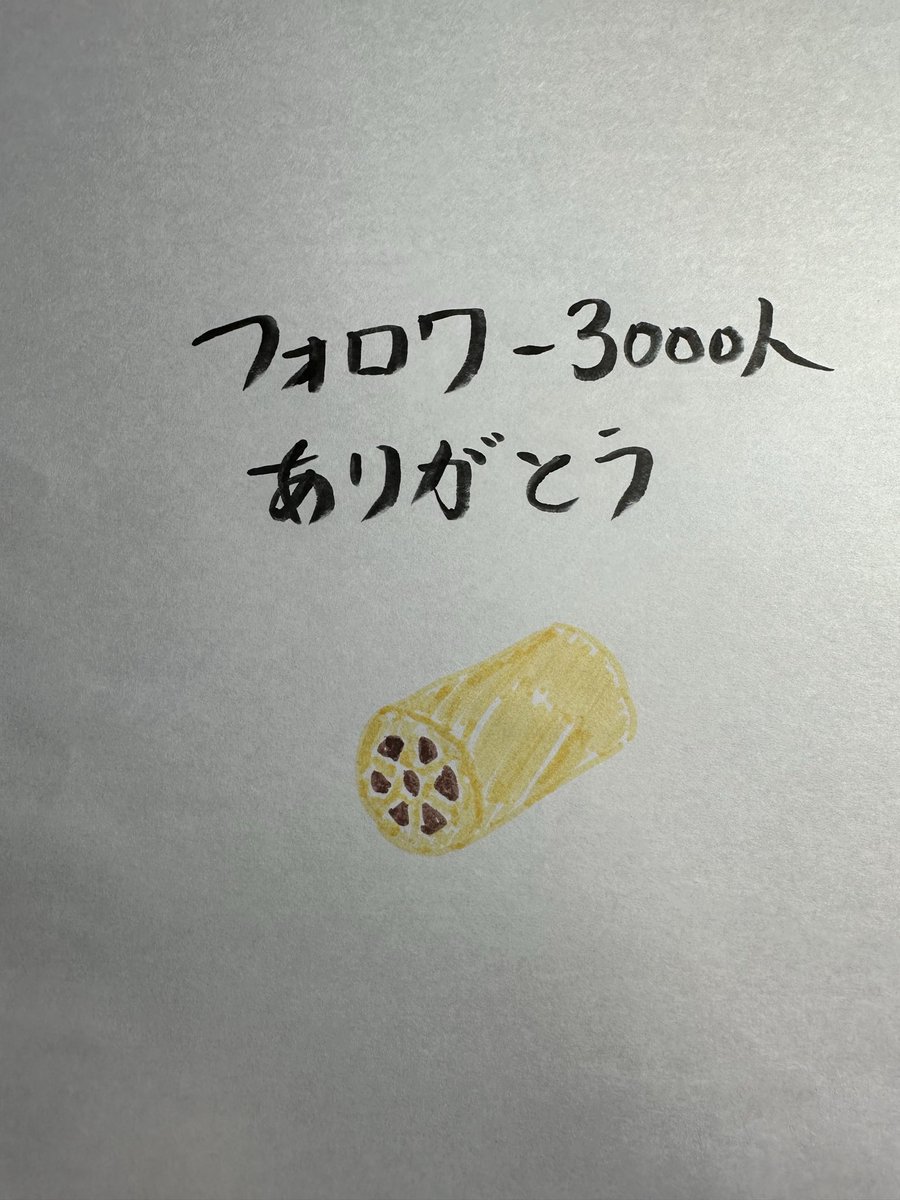 フォロワー3000人
ありがとう